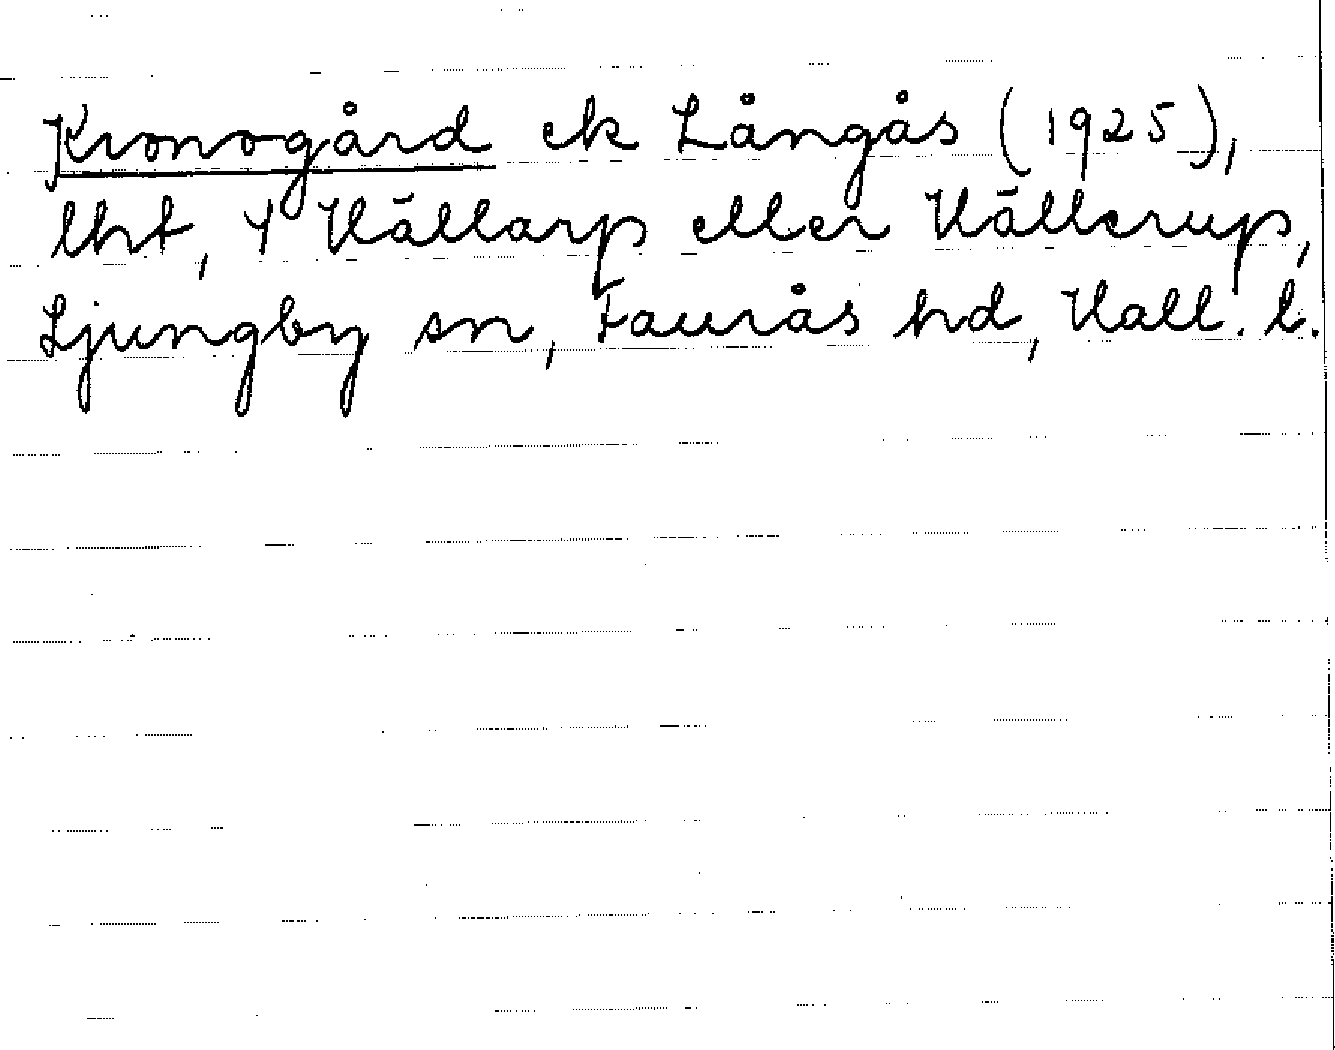 Kronogård ek Långås (1925),
lht, 4 Hällarp eller Hällerup,
Ljungby sn, Faurås hd, Hall. l.